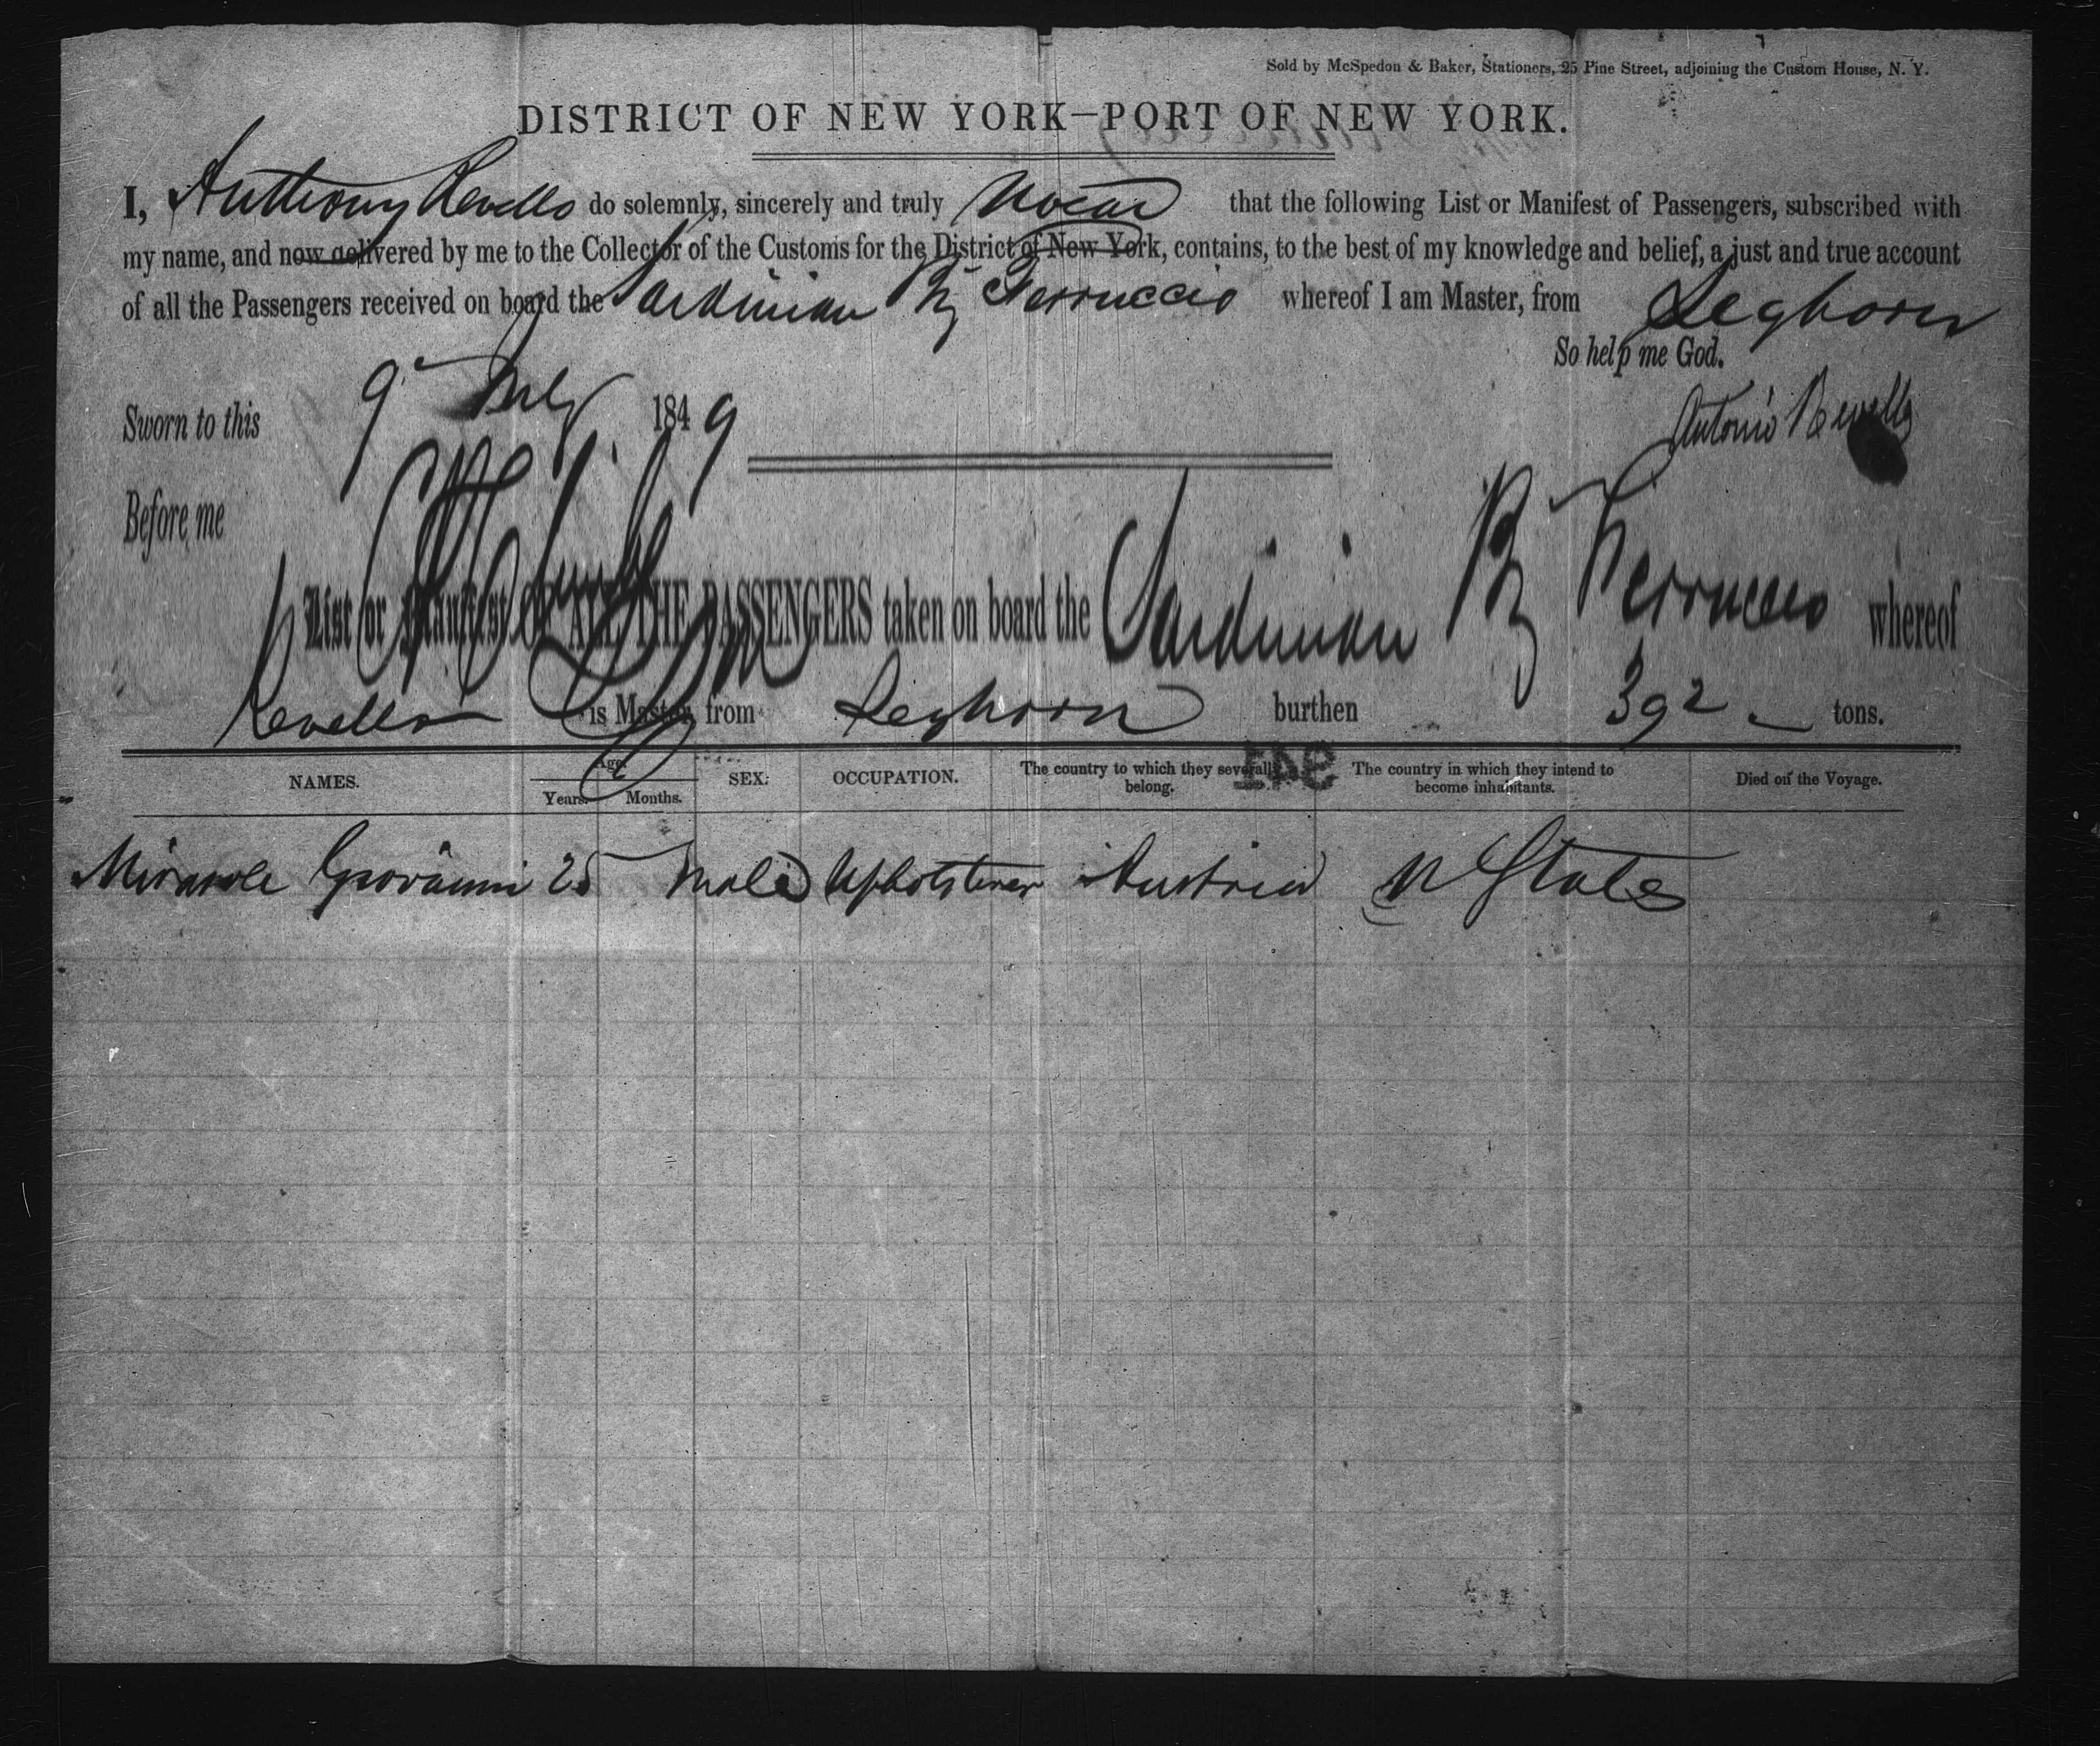 Sold by McSpedon & Baker, Stationers, 25 Pine Street, adjoining the Custom House, N. Y.
DISTRICT OF NEW YORK—PORT OF NEW YORK.
I, Anthony Revello do solemnly, sincerely and truly swear that the following List or Manifest of Passengers, subscribed with
my name, and now delivered by me to the Collector of the Customs for the District of New York, contains, to the best of my knowledge and belief, a just and true account
of all the Passengers received on board the Sardinian Brig Ferruccio whereof I am Master, from Leghorn
So help me God.
Sworn to this 9 July 1849
Antonio Revello
Before me
List or Manifest OF ALL THE PASSENGERS taken on board the Sardinian Brig Ferruccio whereof
Revello is Master, from Leghorn burthen 392 tons.
NAMES. Age. Years. Months. SEX. OCCUPATION. The country to which they severally belong. The country in which they intend to become inhabitants. Died on the Voyage.
941
Giovanni 25 Male Upholsterer Austria U States